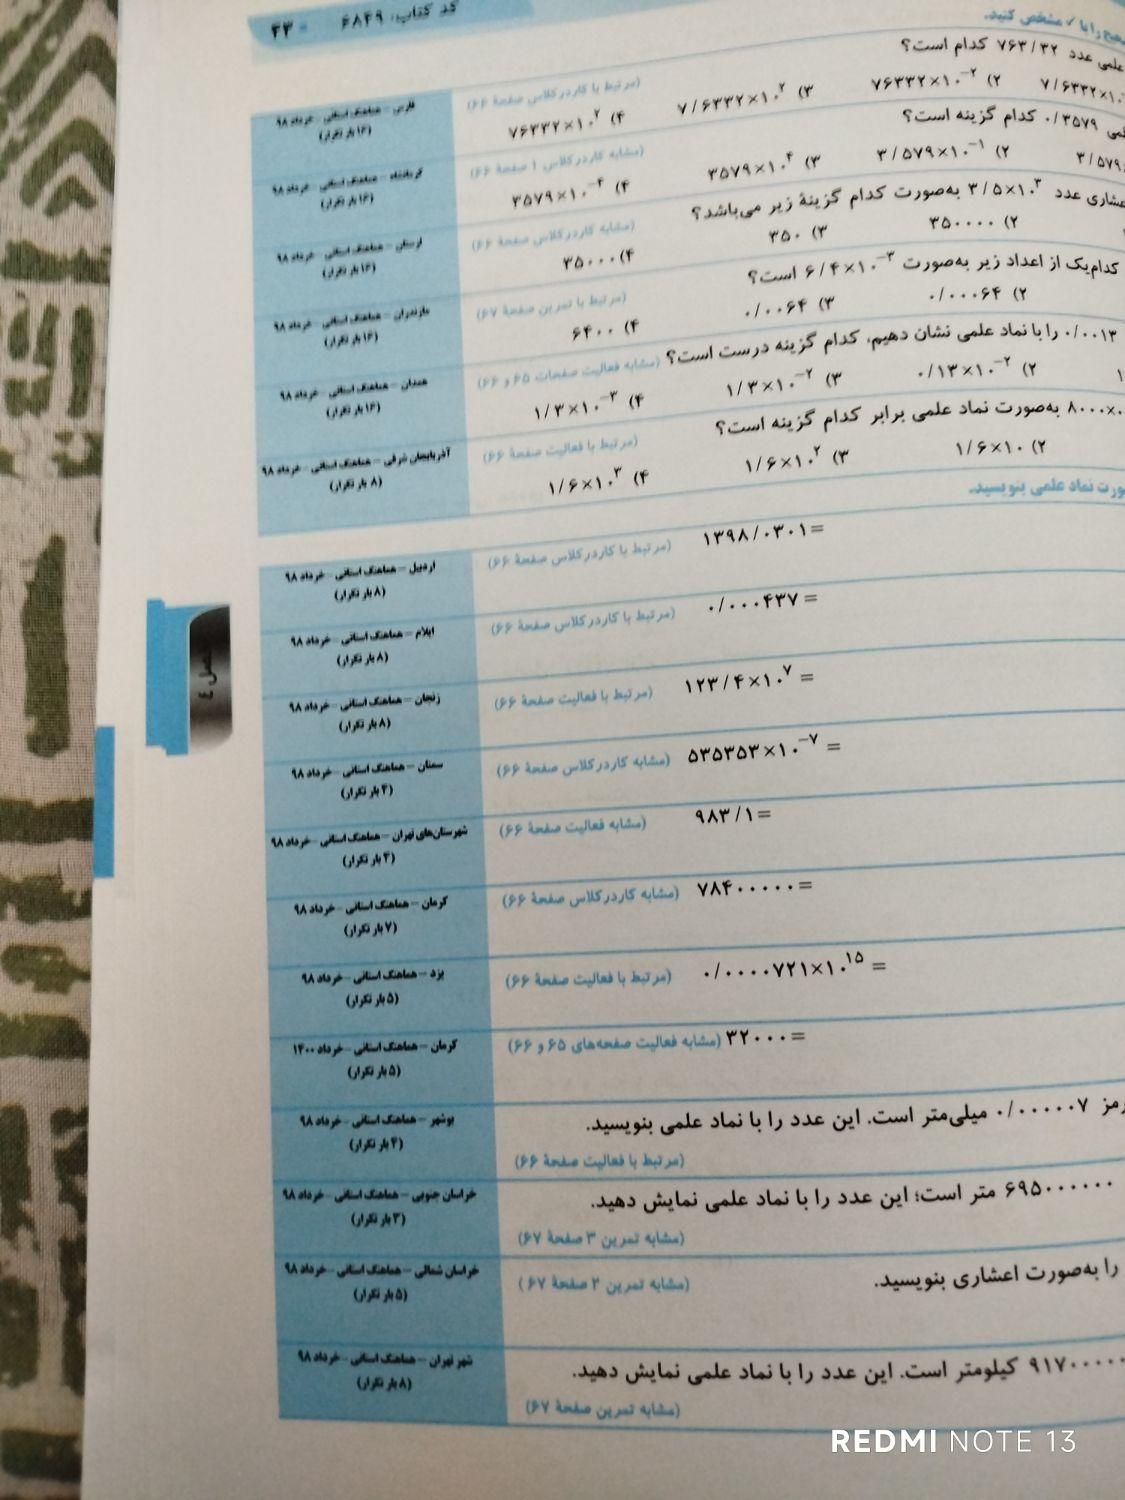 کد کتاب: ۶۸۴۹ - ۴۳
صحیح را با ✓ مشخص کنید.
علمی عدد ۷۶۳/۳۲ کدام است؟
(مرتبط با کاردرکلاس صفحهٔ ۶۶)
۲) ۷۶۳۳۲×۱۰⁻²
۳) ۷/۶۳۳۲×۱۰²
۴) ۷۶۳۳۲×۱۰²
فارس – هماهنگ استانی – خرداد ۹۸
۰/۳۵۷۹ کدام گزینه است؟
(مشابه کاردرکلاس ۱ صفحهٔ ۶۶)
۲) ۳/۵۷۹×۱۰⁻¹
۳) ۳۵۷۹×۱۰⁴
۴) ۳۵۷۹×۱۰⁻⁴
کرمانشاه – هماهنگ استانی – خرداد ۹۸
عدد ۳/۵×۱۰³ به‌صورت کدام گزینهٔ زیر می‌باشد؟
(مرتبط با کاردرکلاس صفحهٔ ۶۶)
۲) ۳۵۰۰۰۰
۳) ۳۵۰
۴) ۳۵۰۰۰
لرستان – هماهنگ استانی – خرداد ۹۸
کدام‌یک از اعداد زیر به‌صورت ۶/۴×۱۰⁻³ است؟
(مرتبط با تمرین صفحهٔ ۶۷)
۲) ۰/۰۰۰۶۴
۳) ۰/۰۰۶۴
۴) ۶۴۰۰
مازندران – هماهنگ استانی – خرداد ۹۸
۰/۰۰۱۳ را با نماد علمی نشان دهیم، کدام گزینه درست است؟ (مشابه فعالیت صفحات ۶۵ و ۶۶)
۲) ۰/۱۳×۱۰⁻²
۳) ۱/۳×۱۰⁻²
۴) ۱/۳×۱۰⁻³
همدان – هماهنگ استانی – خرداد ۹۸
به‌صورت نماد علمی برابر کدام گزینه است؟
(مرتبط با فعالیت صفحهٔ ۶۶)
۲) ۱/۶×۱۰
۳) ۱/۶×۱۰²
۴) ۱/۶×۱۰³
آذربایجان شرقی – هماهنگ استانی – خرداد ۹۸
(۸ بار تکرار)
نماد علمی بنویسید.
۱۳۹۸/۰۳۰۱=
(مرتبط با کاردرکلاس صفحهٔ ۶۶)
اردبیل – هماهنگ استانی – خرداد ۹۸
(۸ بار تکرار)
۰/۰۰۰۴۳۷=
(مرتبط با کاردرکلاس صفحهٔ ۶۶)
ایلام – هماهنگ استانی – خرداد ۹۸
(۸ بار تکرار)
۱۲۳/۴×۱۰⁷ =
(مرتبط با فعالیت صفحهٔ ۶۶)
زنجان – هماهنگ استانی – خرداد ۹۸
(۸ بار تکرار)
۵۳۵۳۵۳×۱۰⁻⁷ =
(مشابه کاردرکلاس صفحهٔ ۶۶)
سمنان – هماهنگ استانی – خرداد ۹۸
(۴ بار تکرار)
۹۸۳/۱=
(مشابه فعالیت صفحهٔ ۶۶)
شهرستان‌های تهران – هماهنگ استانی – خرداد ۹۸
(۴ بار تکرار)
۷۸۴۰۰۰۰۰=
(مشابه کاردرکلاس صفحهٔ ۶۶)
کرمان – هماهنگ استانی – خرداد ۹۸
(۷ بار تکرار)
۰/۰۰۰۰۷۲۱×۱۰¹⁵ =
(مرتبط با فعالیت صفحهٔ ۶۶)
یزد – هماهنگ استانی – خرداد ۹۸
(۵ بار تکرار)
۳۲۰۰۰=
(مشابه فعالیت صفحه‌های ۶۵ و ۶۶)
کرمان – هماهنگ استانی – خرداد ۱۴۰۰
(۵ بار تکرار)
۰/۰۰۰۰۰۷ میلی‌متر است. این عدد را با نماد علمی بنویسید.
(مرتبط با فعالیت صفحهٔ ۶۶)
بوشهر – هماهنگ استانی – خرداد ۹۸
(۴ بار تکرار)
۶۹۵۰۰۰۰۰۰ متر است؛ این عدد را با نماد علمی نمایش دهید.
(مشابه تمرین ۳ صفحهٔ ۶۷)
خراسان جنوبی – هماهنگ استانی – خرداد ۹۸
(۳ بار تکرار)
را به‌صورت اعشاری بنویسید.
(مشابه تمرین ۲ صفحهٔ ۶۷)
خراسان شمالی – هماهنگ استانی – خرداد ۹۸
(۵ بار تکرار)
کیلومتر است. این عدد را با نماد علمی نمایش دهید.
(مشابه تمرین صفحهٔ ۶۷)
شهر تهران – هماهنگ استانی – خرداد ۹۸
(۸ بار تکرار)
REDMI NOTE 13